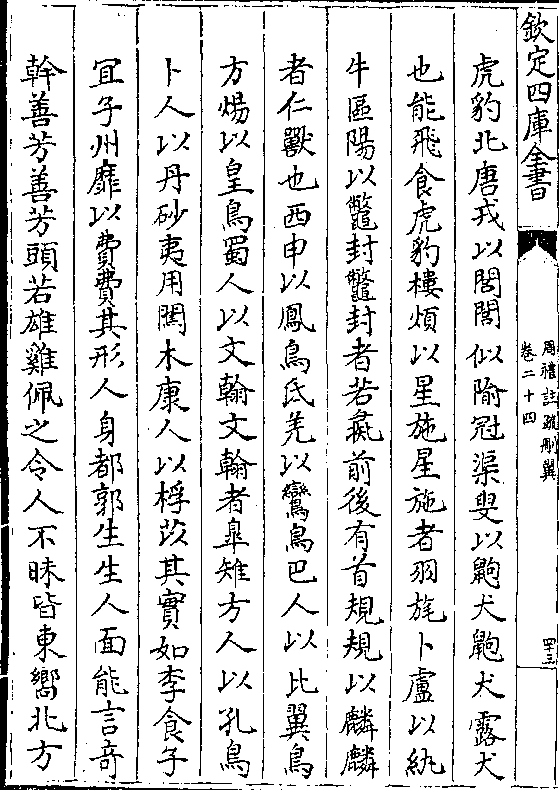 欽定四庫全書
周禮註疏刪翼
卷二十四
四十三
虎豹北唐戎以閭閭似隃冠渠叟以䶂犬䶂犬露犬
也能飛食虎豹樓煩以星施星施者羽旄卜盧以紈
牛區陽以鼈封鼈封者若彘前後有首規規以麟麟
者仁獸也西申以鳳鳥氐羌以鸞鳥巴人以比翼鳥
方煬以皇鳥蜀人以文翰文翰者臯雉方人以孔鳥
卜人以丹砂夷用闒木康人以桴苡其實如李食子
宜子州靡以費費其形人身都郭生生人面能言竒
幹善芳善芳頭若雄雞佩之令人不昧皆東嚮北方